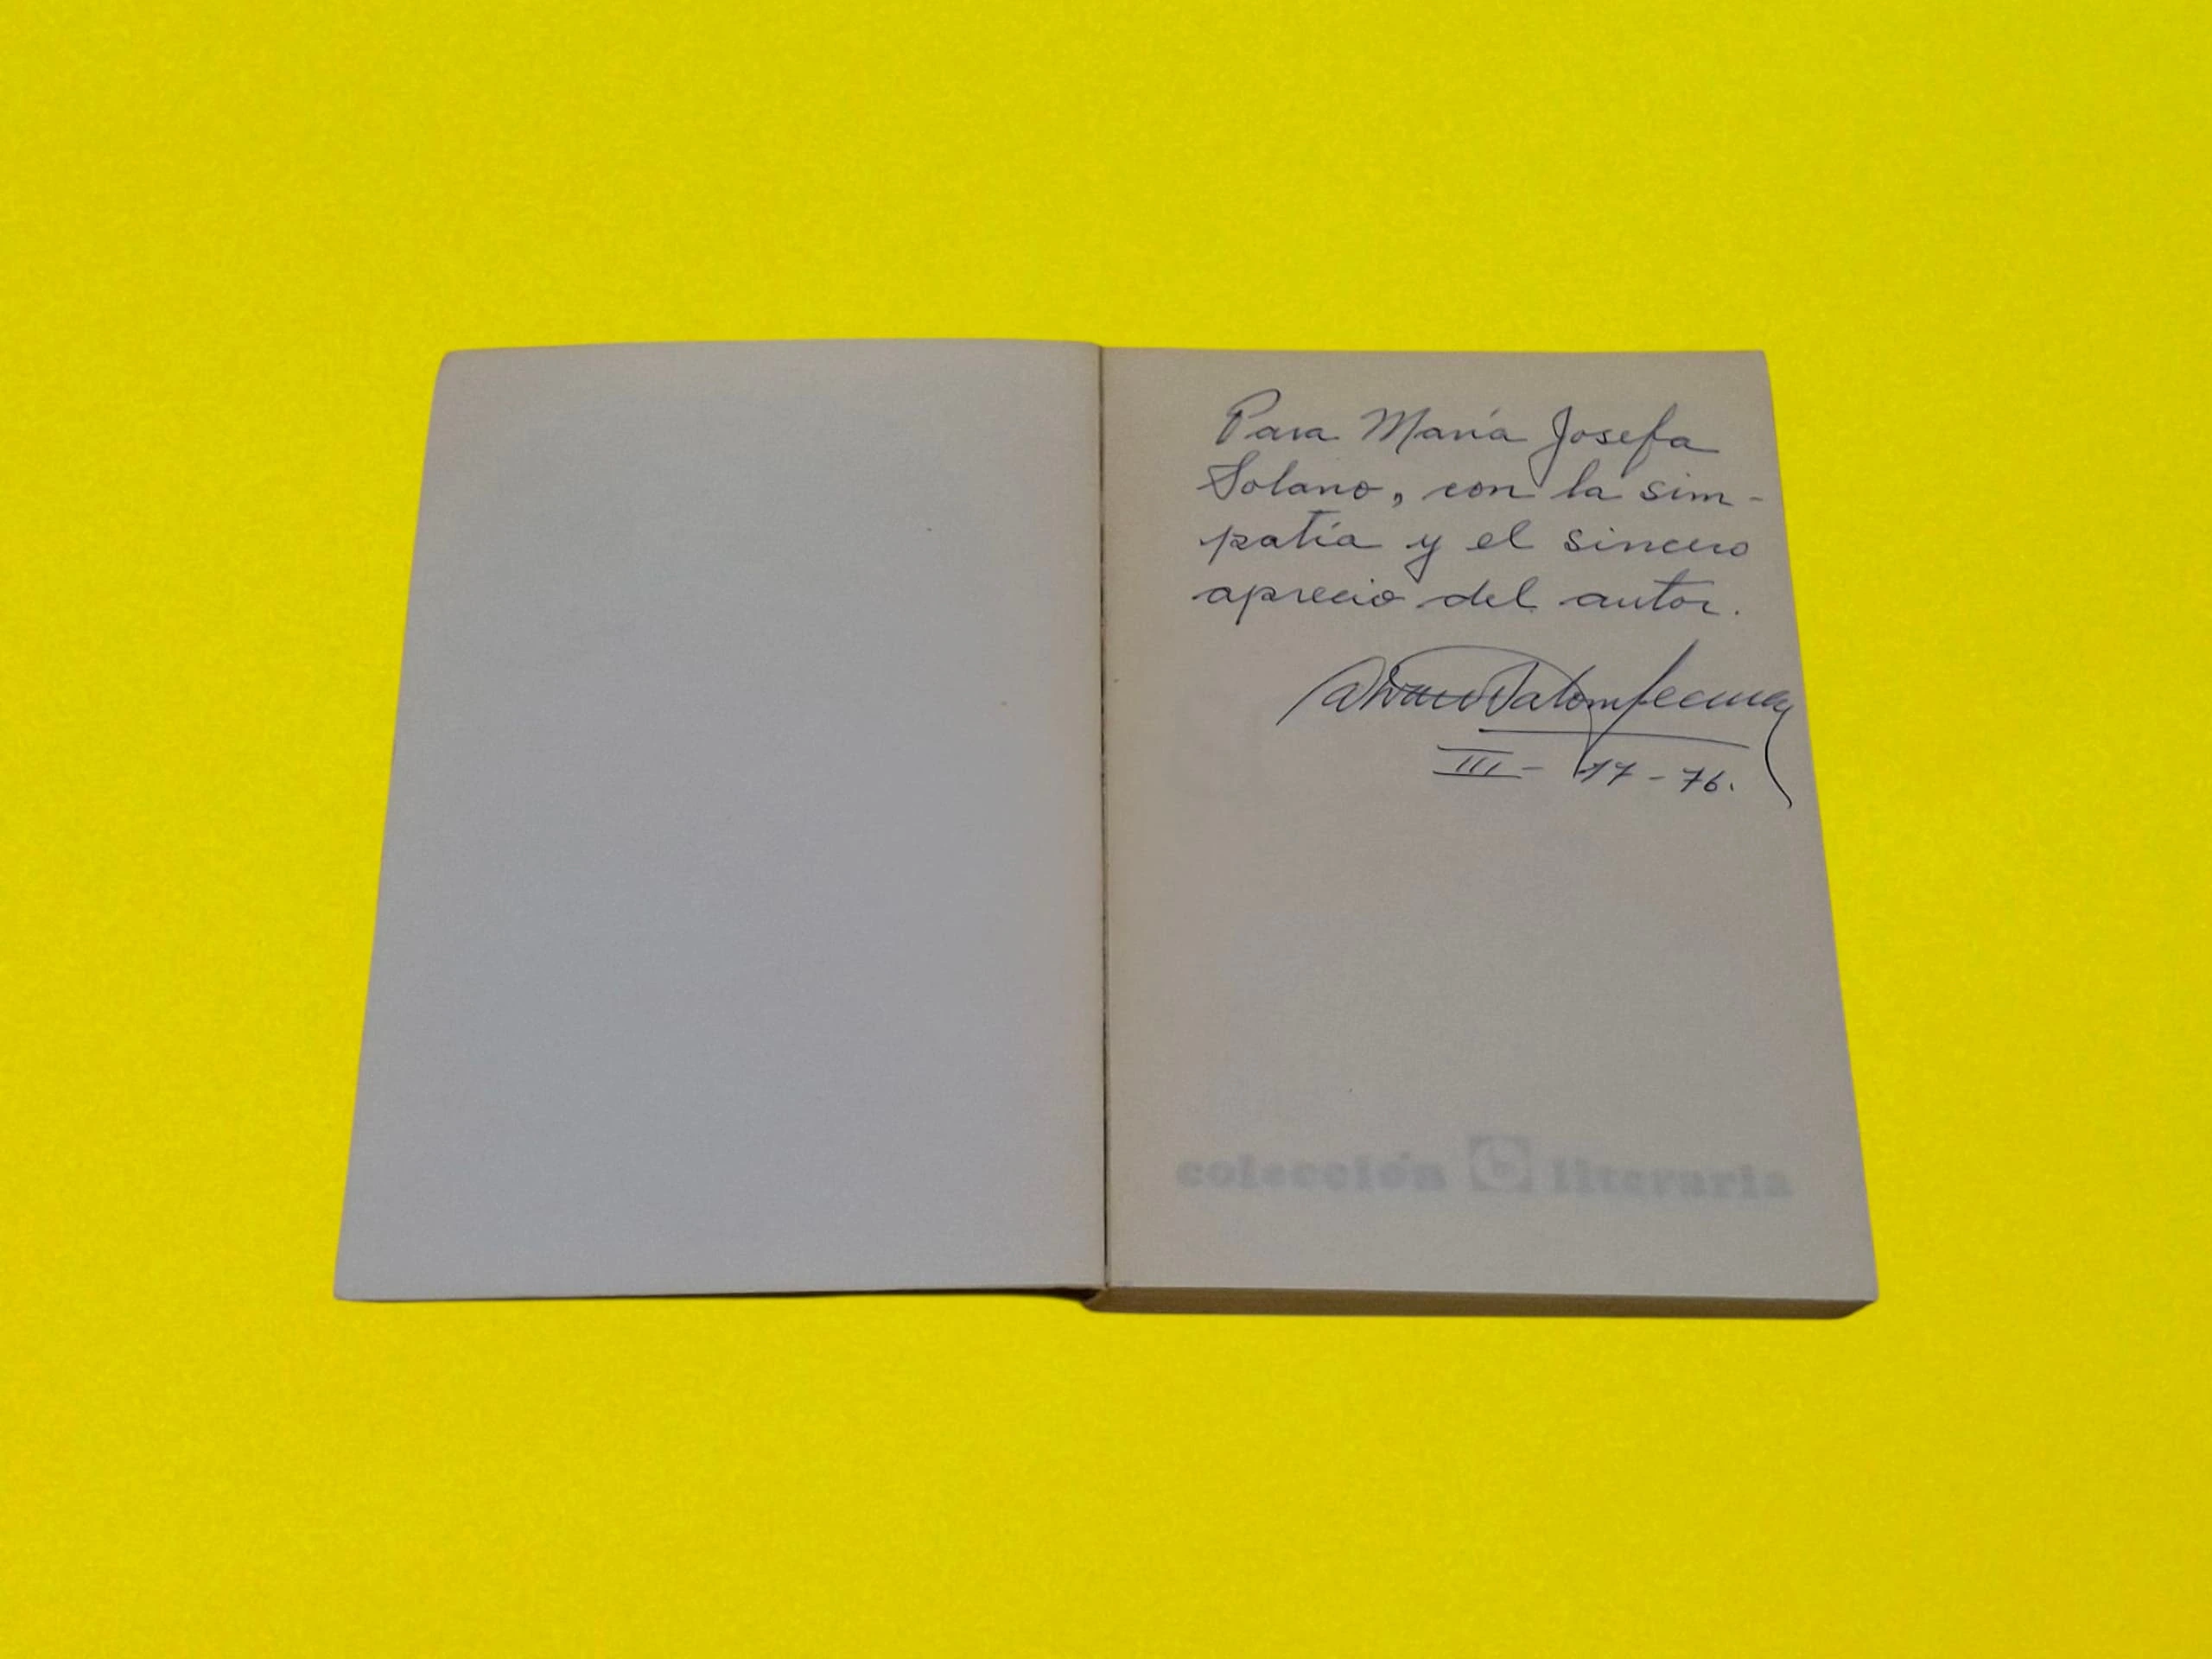 Para María Josefa
Solano, con la sim-
patía y el sincero
aprecio del autor.
III - 17 - 76.
colección literaria